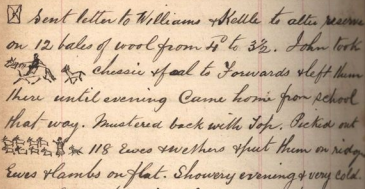 Sent letter to Williams & Kettle to alter reserve
on 12 bales of wool from 4d to 3½. John took
chessie & foal to Forwards & left them
there until evening Came home from school
that way. Mustered back with Top. Picked out
118 Ewes & wethers & put them on ridge
Ewes & lambs on flat. Showery evening & very cold.